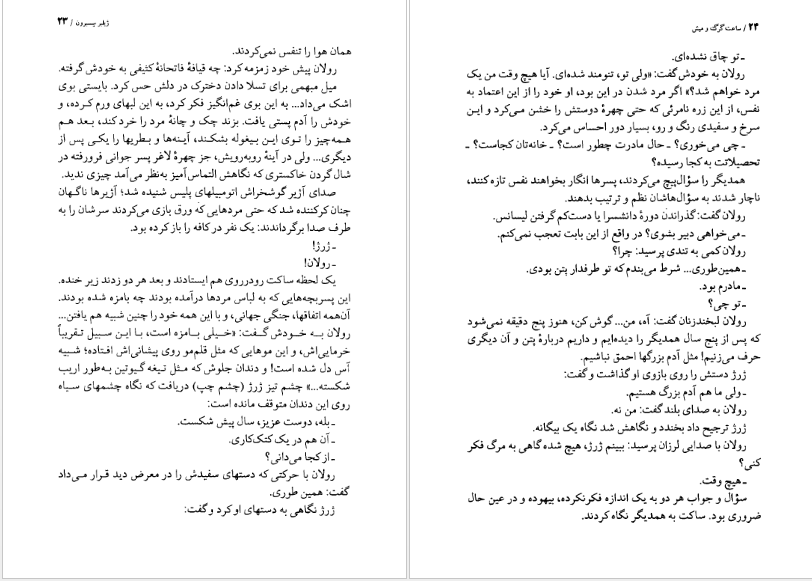 ژیلبر سسبرون / ۲۳
همان هوا را تنفس نمی‌کردند.
رولان پیش خود زمزمه کرد: چه قیافهٔ فاتحانهٔ کثیفی به خودش گرفته.
میل مبهمی برای تسلا دادن دخترک در دلش حس کرد. بایستی بوی
اشک می‌داد... به این بوی غم‌انگیز فکر کرده، به این لبهای ورم کرده، و
خودش را آدم پستی یافت. بزند چک و چانهٔ مرد را خرد کند، بعد هم
همه‌چیز را توی این بیغوله بشکند، آینه‌ها و بطریها را یکی پس از
دیگری... ولی در آینهٔ روبه‌رویش، جز چهرهٔ لاغر پسر جوانی فرورفته در
شال گردن خاکستری که نگاهش التماس‌آمیز به‌نظر می‌آمد چیزی ندید.
صدای آژیر گوشخراش اتومبیلهای پلیس شنیده شد؛ آژیرها ناگهان
چنان کرکننده شد که حتی مردهایی که ورق بازی می‌کردند سرشان را به
طرف صدا برگرداندند: یک نفر در کافه را باز کرده بود.
ـ ژرژ!
ـ رولان!
یک لحظه ساکت رودرروی هم ایستادند و بعد هر دو زدند زیر خنده.
این پسربچه‌هایی که به لباس مردها درآمده بودند چه بامزه شده بودند.
آن‌همه اتفاقها، جنگی جهانی، و با این همه خود را چنین شبیه هم یافتن...
رولان به خودش گفت: «خیلی بامزه است، با این سبیل تقریباً
خرمایی‌اش، و این موهایی که مثل قلم‌مو روی پیشانی‌اش افتاده؛ شبیه
آس دل شده است! و دندان جلوش که مثل تیغه گیوتین به‌طور اریب
شکسته...» چشم تیز ژرژ (چشم چپ) دریافت که نگاه چشمهای سیاه
روی این دندان متوقف مانده است:
ـ بله، دوست عزیز، سال پیش شکست.
ـ آن هم در یک کتک‌کاری.
ـ از کجا می‌دانی؟
رولان با حرکتی که دستهای سفیدش را در معرض دید قرار می‌داد
گفت: همین طوری.
ژرژ نگاهی به دستهای او کرد و گفت:
۲۴ / ساعت گرگ و میش
ـ تو چاق نشده‌ای.
رولان به خودش گفت: «ولی تو، تنومند شده‌ای. آیا هیچ وقت من یک
مرد خواهم شد؟» اگر مرد شدن در این بود، او خود را از این اعتماد به
نفس، از این زره نامرئی که حتی چهرهٔ دوستش را خشن می‌کرد و این
سرخ و سفیدی رنگ و رو، بسیار دور احساس می‌کرد.
ـ چی می‌خوری؟ ـ حال مادرت چطور است؟ ـ خانه‌تان کجاست؟ ـ
تحصیلاتت به کجا رسیده؟
همدیگر را سؤال‌پیچ می‌کردند، پسرها انگار بخواهند نفس تازه کنند،
ناچار شدند به سؤال‌هاشان نظم و ترتیب بدهند.
رولان گفت: گذراندن دورهٔ دانشسرا یا دست‌کم گرفتن لیسانس.
ـ می‌خواهی دبیر بشوی؟ در واقع از این بابت تعجب نمی‌کنم.
رولان کمی به تندی پرسید: چرا؟
ـ همین‌طوری... شرط می‌بندم که تو طرفدار پتن بودی.
ـ مادرم بود.
ـ تو چی؟
رولان لبخندزنان گفت: آه، من... گوش کن، هنوز پنج دقیقه نمی‌شود
که پس از پنج سال همدیگر را دیده‌ایم و داریم دربارهٔ پتن و آن دیگری
حرف می‌زنیم! مثل آدم بزرگها احمق نباشیم.
ژرژ دستش را روی بازوی او گذاشت و گفت:
ـ ولی ما هم آدم بزرگ هستیم.
رولان به صدای بلند گفت: من نه.
ژرژ ترجیح داد بخندد و نگاهش شد نگاه یک بیگانه.
رولان با صدایی لرزان پرسید: ببینم ژرژ، هیچ شده گاهی به مرگ فکر
کنی؟
ـ هیچ وقت.
سؤال و جواب هر دو به یک اندازه فکرنکرده، بیهوده و در عین حال
ضروری بود. ساکت به همدیگر نگاه کردند.